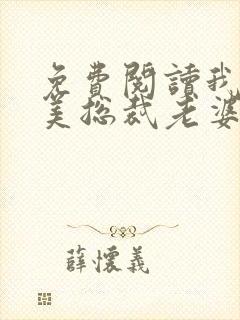 免費閱讀我
美總裁老婆
薛懷義